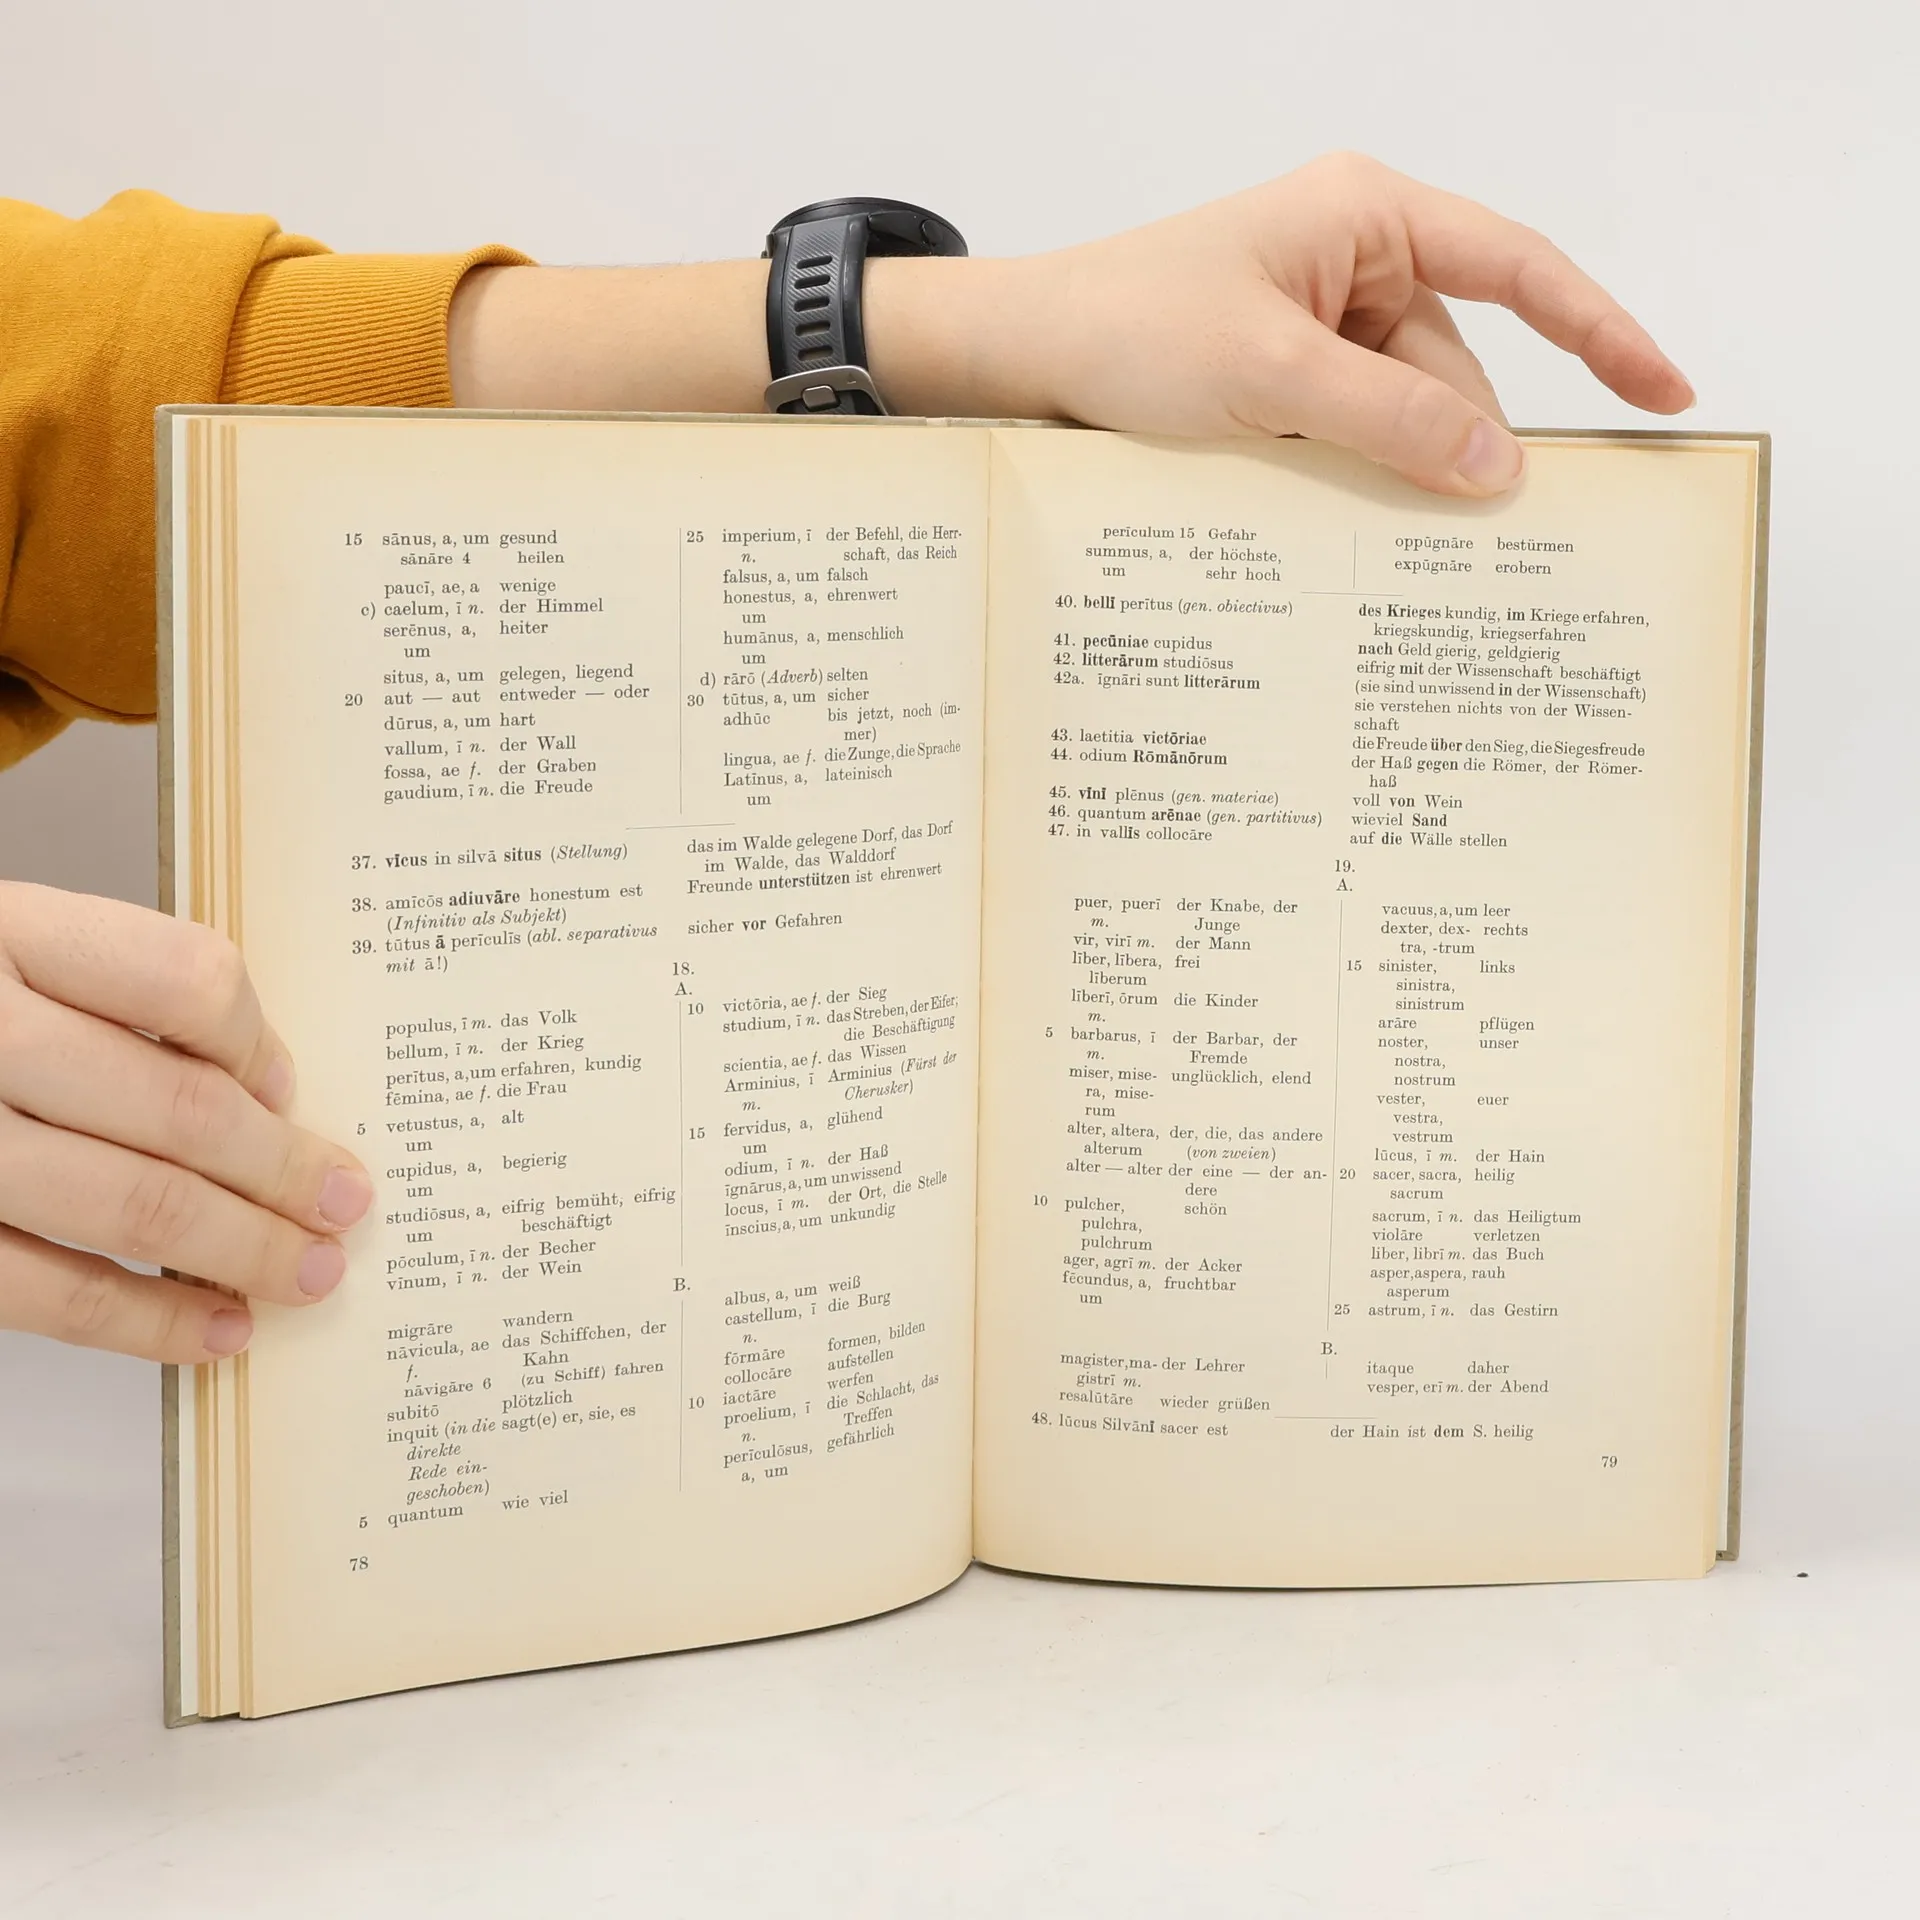 15 sānus, a, um gesund
sānāre 4 heilen
paucī, ae, a wenige
c) caelum, ī n. der Himmel
serēnus, a, heiter
um
situs, a, um gelegen, liegend
20 aut — aut entweder — oder
dūrus, a, um hart
vallum, ī n. der Wall
fossa, ae f. der Graben
gaudium, ī n. die Freude
25 imperium, ī der Befehl, die Herr-
n. schaft, das Reich
falsus, a, um falsch
honestus, a, ehrenwert
um
humānus, a, menschlich
um
d) rārō (Adverb) selten
30 tūtus, a, um sicher
adhūc bis jetzt, noch (im-
mer)
lingua, ae f. die Zunge, die Sprache
Latīnus, a, lateinisch
um
37. vīcus in silvā situs (Stellung)
das im Walde gelegene Dorf, das Dorf
im Walde, das Walddorf
38. amīcōs adiuvāre honestum est
(Infinitiv als Subjekt)
Freunde unterstützen ist ehrenwert
39. tūtus ā perīculīs (abl. separativus
mit ā!)
sicher vor Gefahren
18.
A.
populus, ī m. das Volk
bellum, ī n. der Krieg
perītus, a, um erfahren, kundig
fēmina, ae f. die Frau
5 vetustus, a, alt
um
cupidus, a, begierig
um
studiōsus, a, eifrig bemüht, eifrig
um beschäftigt
pōculum, ī n. der Becher
vīnum, ī n. der Wein
10 victōria, ae f. der Sieg
studium, ī n. das Streben, der Eifer;
die Beschäftigung
scientia, ae f. das Wissen
Arminius, ī Arminius (Fürst der
m. Cherusker)
15 fervidus, a, glühend
um
odium, ī n. der Haß
īgnārus, a, um unwissend
locus, ī m. der Ort, die Stelle
īnscius, a, um unkundig
B.
migrāre wandern
nāvicula, ae das Schiffchen, der
f. Kahn
nāvigāre 6 (zu Schiff) fahren
subitō plötzlich
inquit (in die sagt(e) er, sie, es
direkte
Rede ein-
geschoben)
5 quantum wie viel
albus, a, um weiß
castellum, ī die Burg
n.
fōrmāre formen, bilden
collocāre aufstellen
10 iactāre werfen
proelium, ī die Schlacht, das
n. Treffen
perīculōsus, gefährlich
a, um
78
perīculum 15 Gefahr
summus, a, der höchste,
um sehr hoch
oppūgnāre bestürmen
expūgnāre erobern
40. bellī perītus (gen. obiectivus)
des Krieges kundig, im Kriege erfahren,
kriegskundig, kriegserfahren
41. pecūniae cupidus
nach Geld gierig, geldgierig
42. litterārum studiōsus
eifrig mit der Wissenschaft beschäftigt
42a. īgnāri sunt litterārum
(sie sind unwissend in der Wissenschaft)
sie verstehen nichts von der Wissen-
schaft
43. laetitia victōriae
die Freude über den Sieg, die Siegesfreude
44. odium Rōmānōrum
der Haß gegen die Römer, der Römer-
haß
45. vīnī plēnus (gen. materiae)
voll von Wein
46. quantum arēnae (gen. partitivus)
wieviel Sand
47. in vallīs collocāre
auf die Wälle stellen
19.
A.
puer, puerī der Knabe, der
m. Junge
vir, virī m. der Mann
līber, lībera, frei
līberum
līberī, ōrum die Kinder
m.
5 barbarus, ī der Barbar, der
m. Fremde
miser, mise- unglücklich, elend
ra, mise-
rum
alter, altera, der, die, das andere
alterum (von zweien)
alter — alter der eine — der an-
dere
10 pulcher, schön
pulchra,
pulchrum
ager, agrī m. der Acker
fēcundus, a, fruchtbar
um
vacuus, a, um leer
dexter, dex- rechts
tra, -trum
15 sinister, links
sinistra,
sinistrum
arāre pflügen
noster, unser
nostra,
nostrum
vester, euer
vestra,
vestrum
lūcus, ī m. der Hain
20 sacer, sacra, heilig
sacrum
sacrum, ī n. das Heiligtum
violāre verletzen
liber, librī m. das Buch
asper, aspera, rauh
asperum
25 astrum, ī n. das Gestirn
B.
magister, ma- der Lehrer
gistrī m.
resalūtāre wieder grüßen
itaque daher
vesper, erī m. der Abend
48. lūcus Silvānī sacer est
der Hain ist dem S. heilig
79